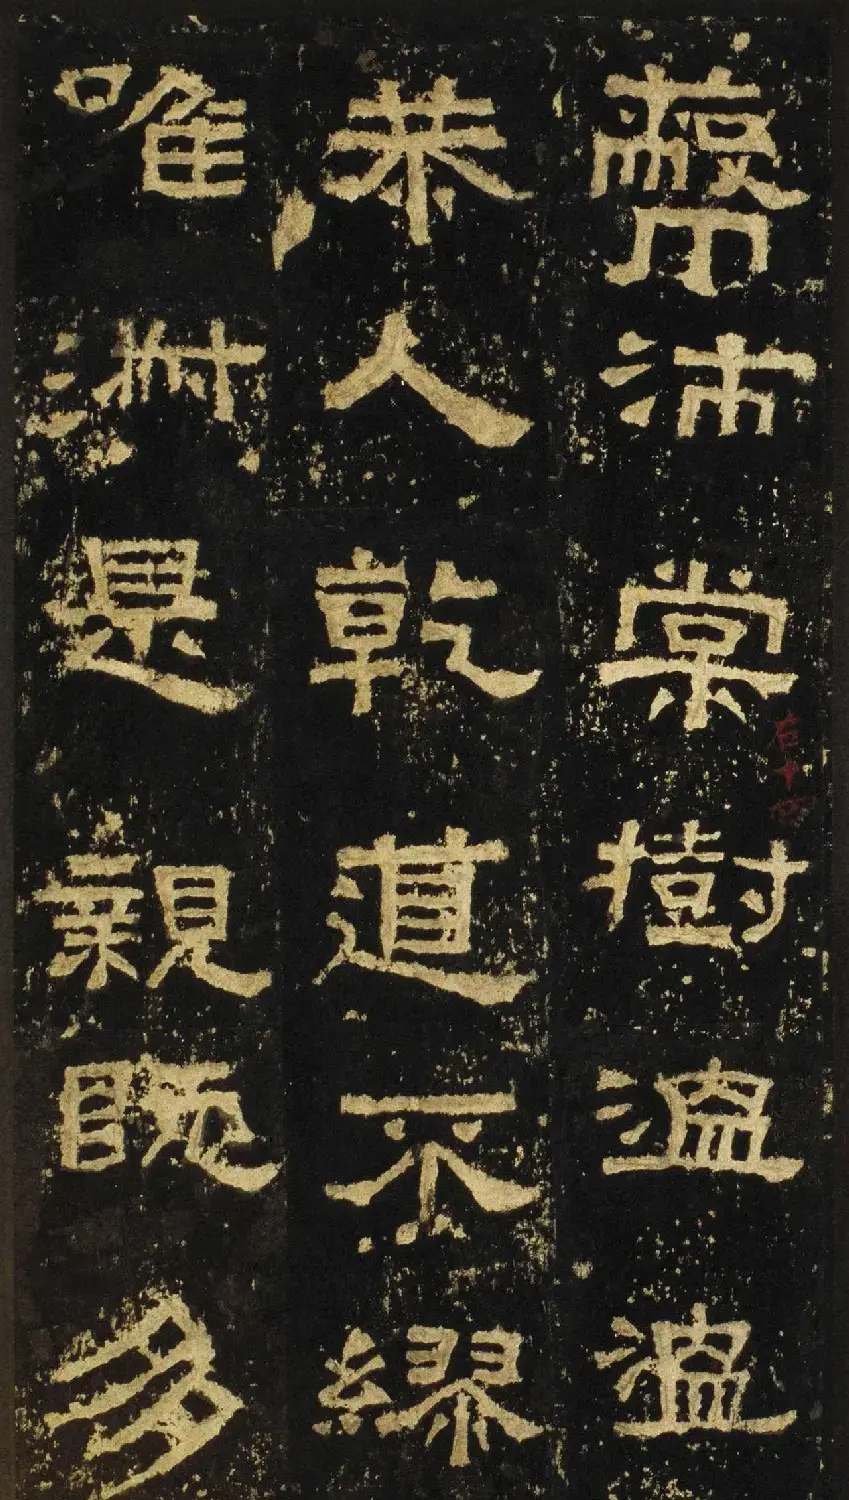 蔽沛棠樹溫溫
恭人乾道不繆
唯淑是親既多